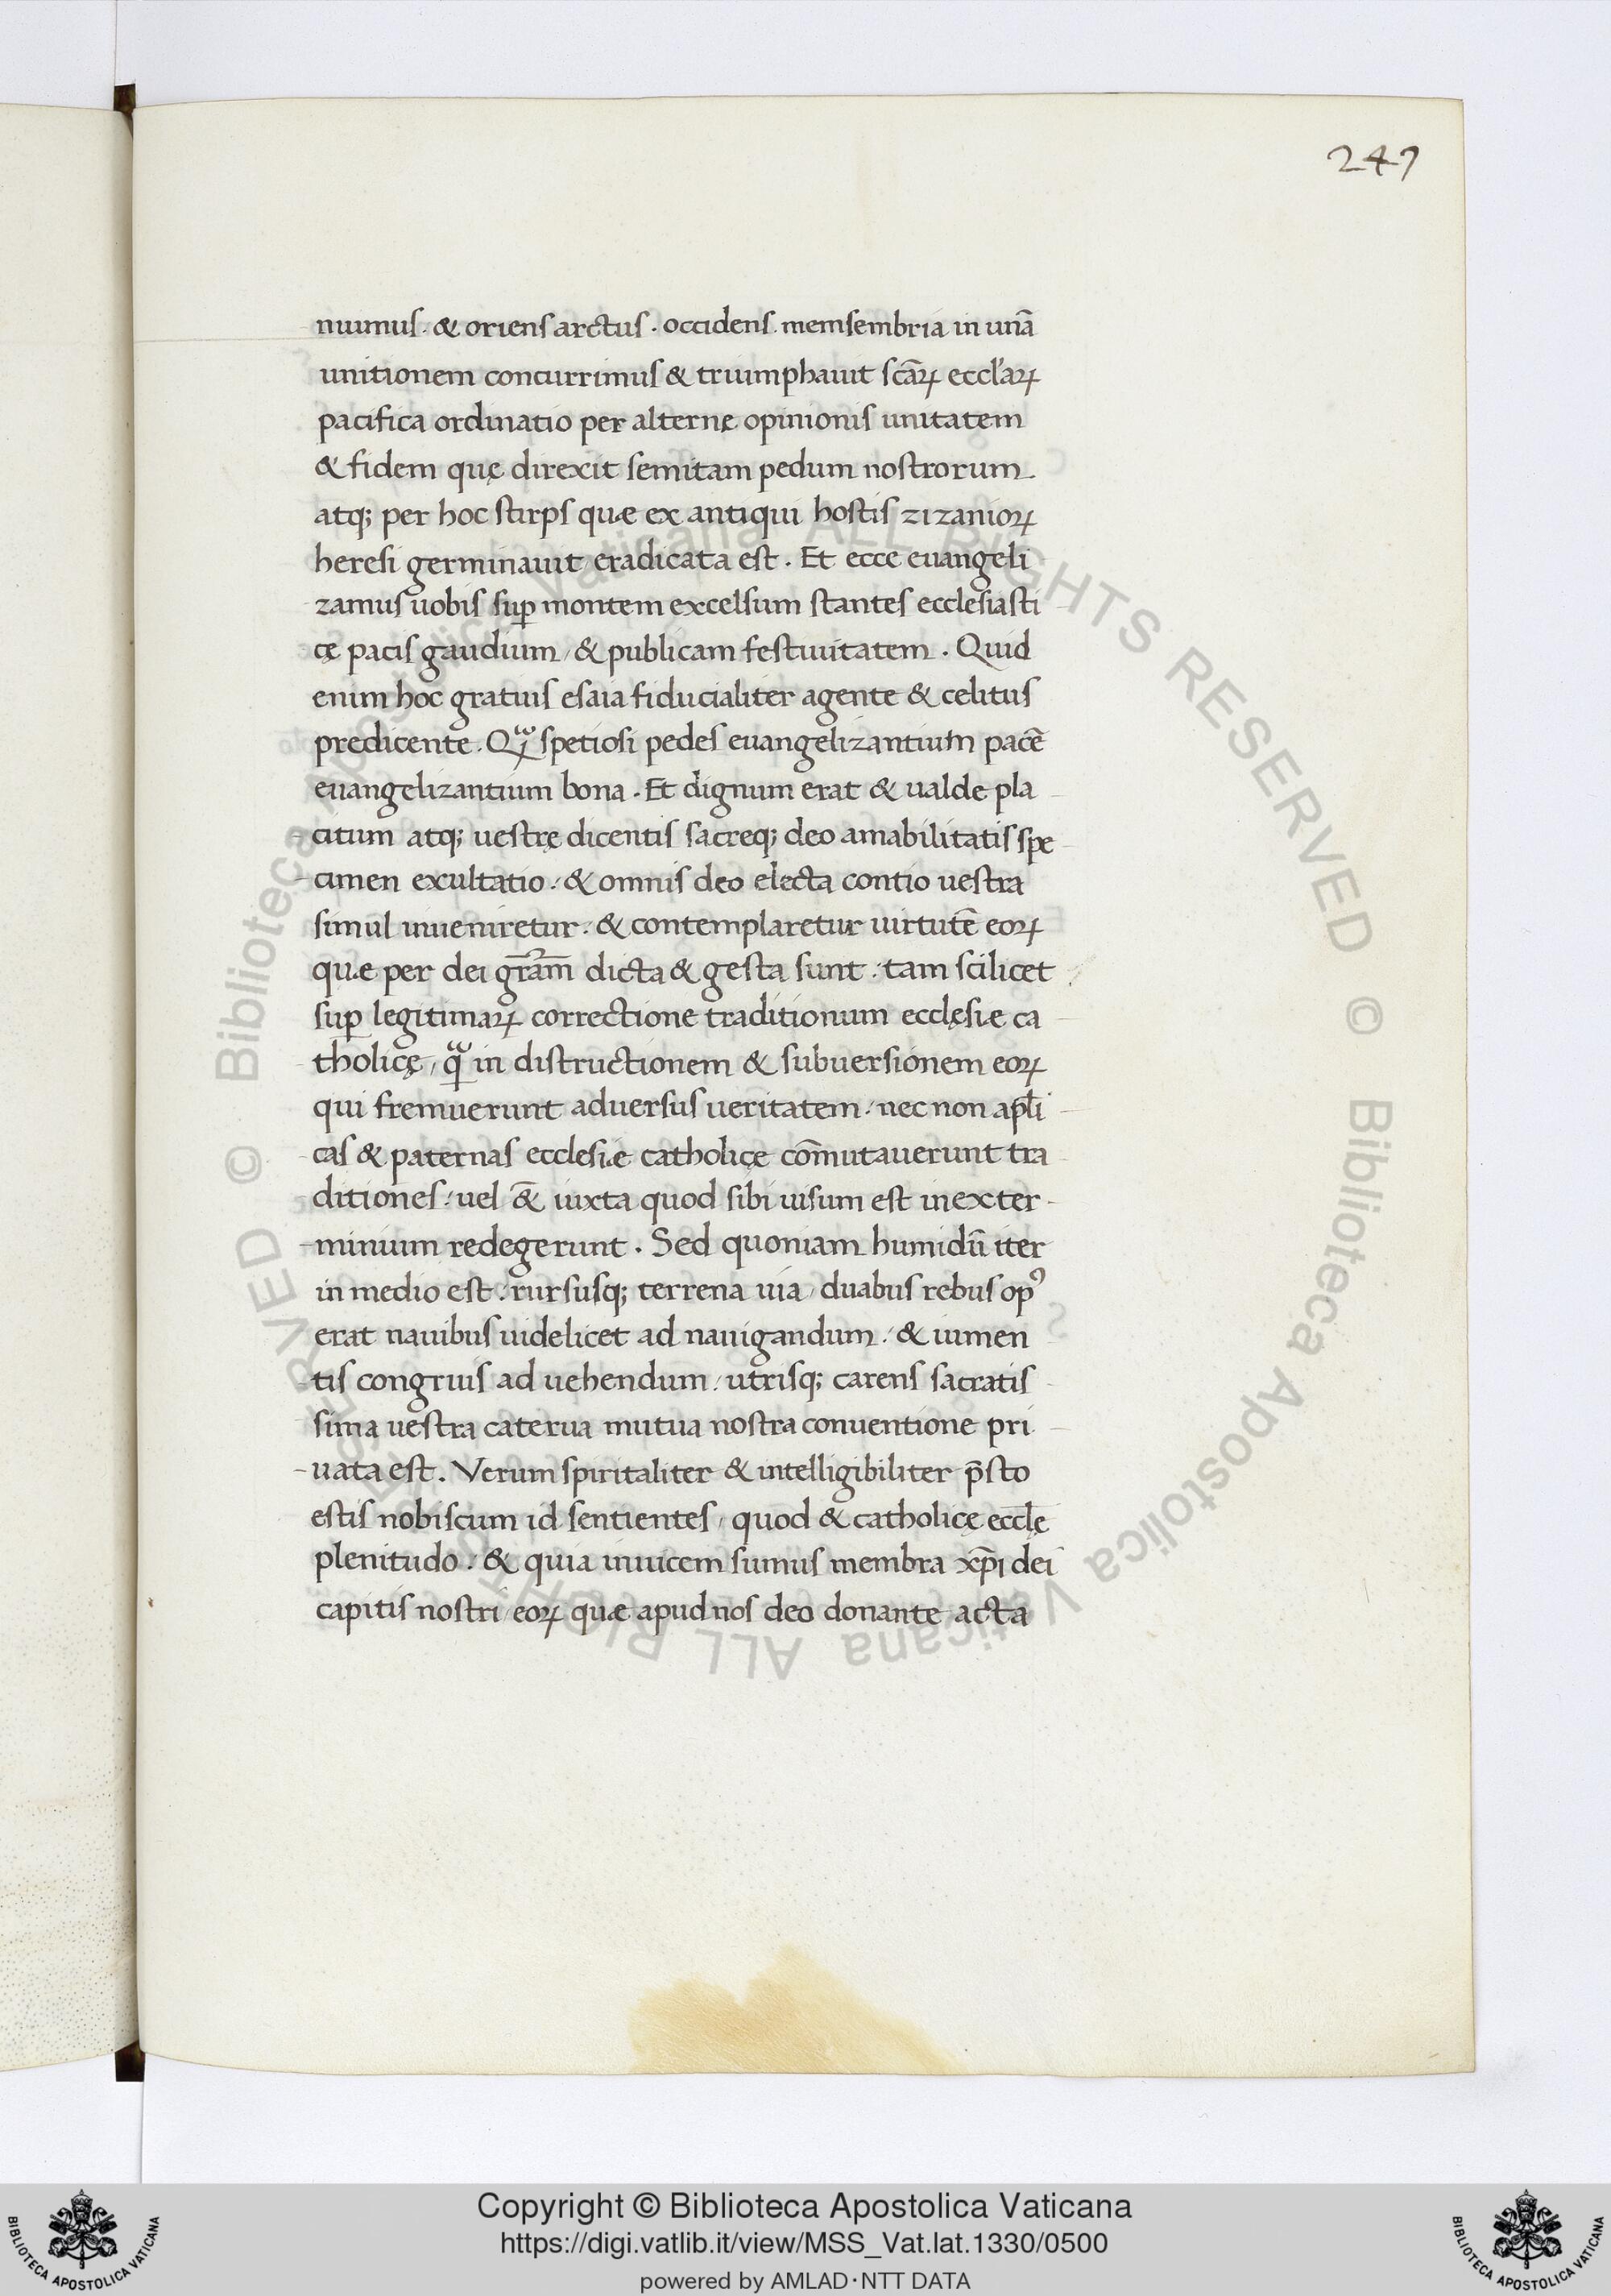 247
nuimus. & oriens arctus. occidens. memsembria in unā
unitionem concurrimus & triumphauit scāꝝ eccl'aꝝ
pacifica ordinatio per alternę opinionis unitatem
& fidem quę direxit semitam pedum nostrorum.
atq; per hoc stirps quæ ex antiqui hostis zizanioꝝ
heresi germinauit eradicata est. Et ecce euangeli
zamus uobis suꝑ montem excelsum stantes ecclesiasti
cę pacis gaudium, & publicam festiuitatem. Quid
enim hoc gratius esaia fiducialiter agente & celitus
predicente. Qͣ spetiosi pedes euangelizantium pacē
euangelizantium bona. Et dignum erat & ualde pla
citum atq; uestrę dicentis sacreq; deo amabilitatis spe
cimen exultatio. & omnis deo electa contio uestra
simul inueniretur. & contemplaretur uirtutē eoꝝ
quæ per dei grām dicta & gesta sunt. tam scilicet
suꝑ legitimaꝝ correctione traditionum ecclęsiæ ca
tholicę, qͣ in distructionem & subuersionem eoꝝ
qui fremuerunt aduersus ueritatem. nec non apl̄i
cas & paternas ecclesiæ catholicę cōmutauerunt tra
ditiones. uel &̄ iuxta quod sibi uisum est in exter
minium redegerunt. Sed quoniam humidū iter
in medio est. rursusq; terrena uia, duabus rebus opꝰ
erat nauibus uidelicet ad nauigandum. & iumen
tis congruis ad uehendum. utrisq; carens sacratis
sima uestra caterua mutua nostra conuentione pri
uata est. Verum spiritaliter & intelligibiliter p̄sto
estis nobiscum id sentientes, quod & catholicę eccl̄ę
plenitudo. & quia inuicem sumus membra xp̄i dei
capitis nostri eoꝝ quæ apud nos deo donante acta
© Biblioteca Apostolica Vaticana ALL RIGHTS RESERVED
© Biblioteca Apostolica Vaticana ALL RIGHTS RESERVED
Copyright © Biblioteca Apostolica Vaticana
https://digi.vatlib.it/view/MSS_Vat.lat.1330/0500
powered by AMLAD·NTT DATA
BIBLIOTECA APOSTOLICA VATICANA
BIBLIOTECA APOSTOLICA VATICANA